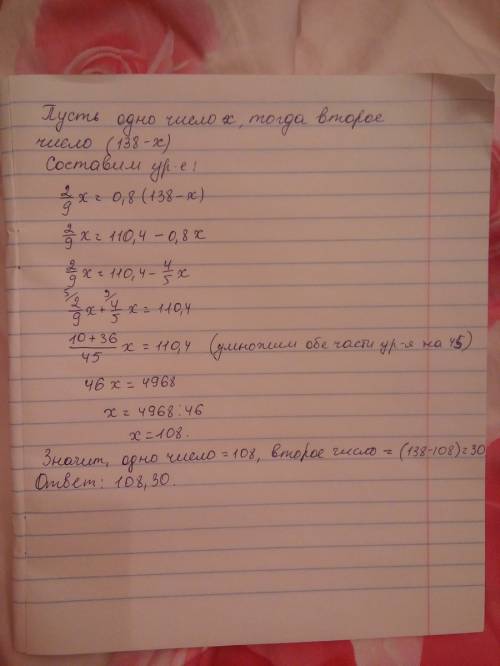 Пусть одно число x, тогда второе
число (138-x)
Составим ур-е:
2/9 x = 0,8(138-x)
2/9 x = 110,4 - 0,8x
2/9 x = 110,4 - 4/5 x
5/ 2/9 x + 9/ 4/5 x = 110,4
(10+36)/45 x = 110,4 (умножим обе части ур-я на 45)
46x = 4968
x = 4968:46
x = 108.
Значит, одно число = 108, второе число = (138-108) = 30
Ответ: 108, 30.